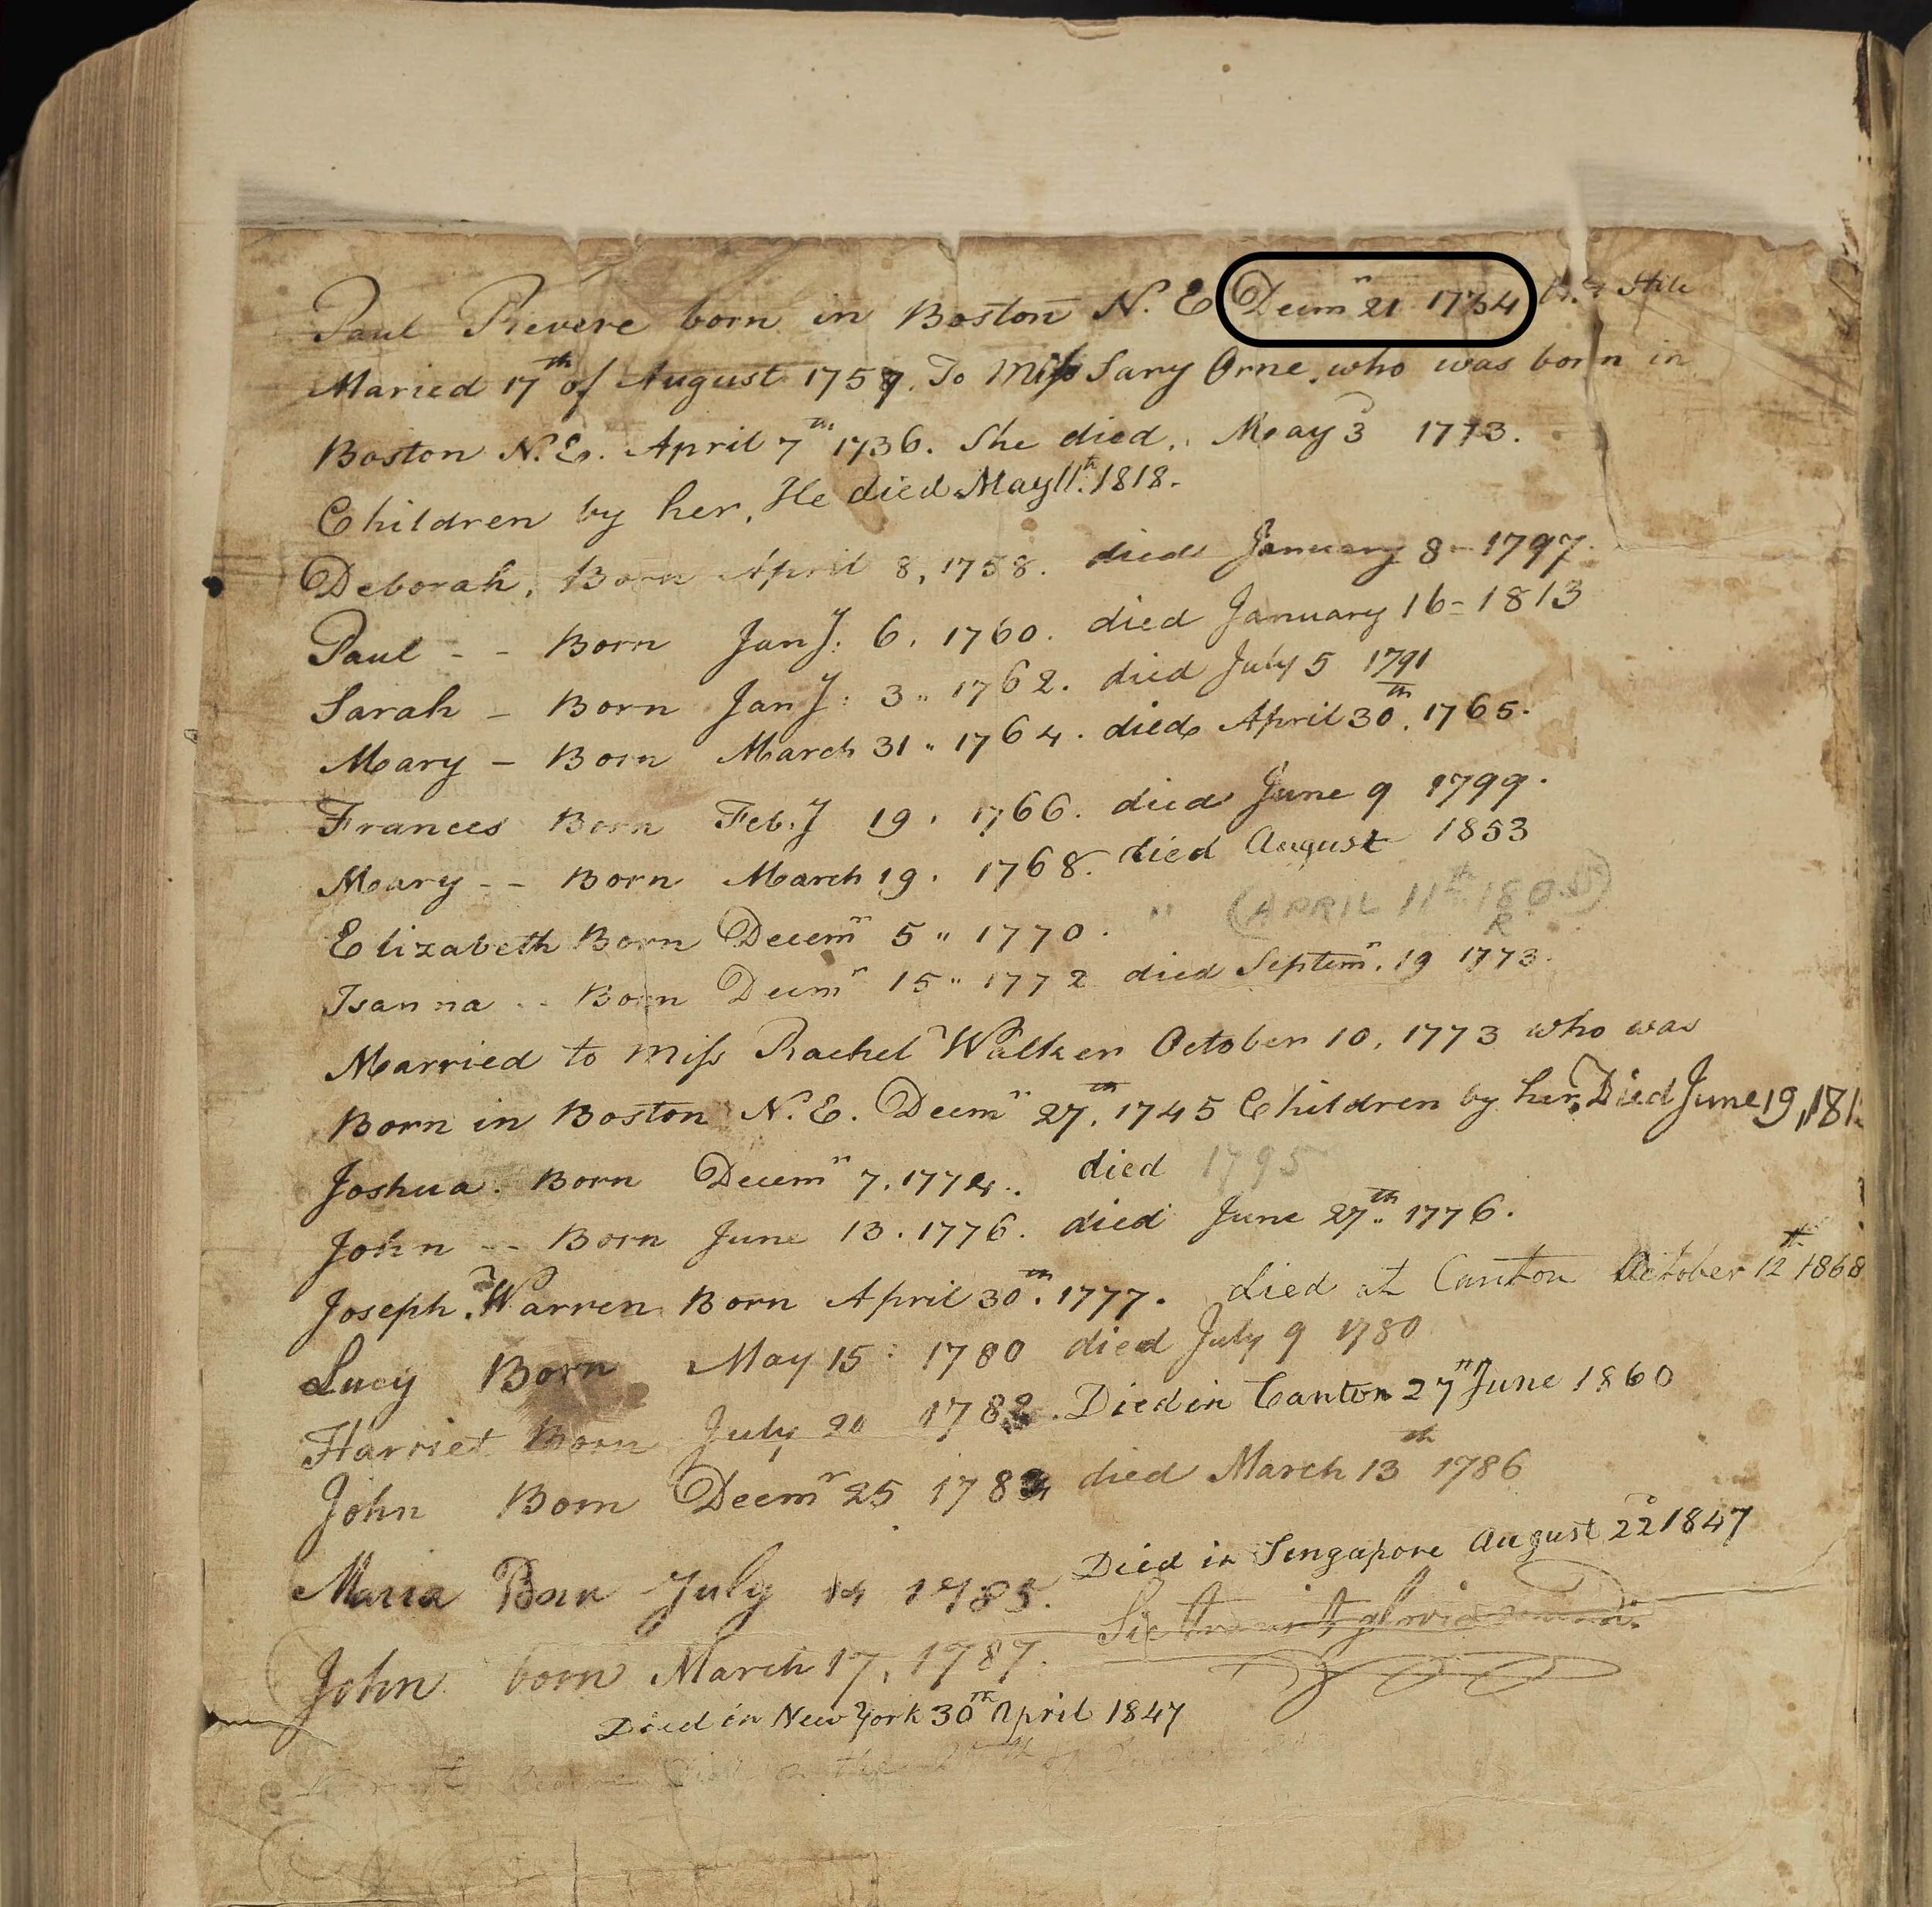 Paul Revere born in Boston N. E Decmr 21 1734 Stile
Maried 17th of August 1757. To Miss Sary Orne, who was born in
Boston N. E. April 7th 1736. She died, May 3 1773.
Children by her, He died May 11th 1818.
Deborah, Born April 8, 1758. died January 8 - 1797.
Paul - - Born Jany. 6, 1760. died January 16 = 1813
Sarah - Born Jany: 3 " 1762. died July 5 1791
Mary - Born March 31 " 1764. died April 30th. 1765.
Frances Born Feb.y 19, 1766. died June 9 1799.
Mary - - Born March 19, 1768. died August 1853
Elizabeth Born Decemr 5 " 1770. " (APRIL 11th
R
Isanna - - Born Decmr 15 " 1772 died Septemr. 19 1773.
Married to Miss Rachel Walker October 10, 1773 who was
Born in Boston N. E. Decmr 27th, 1745 Children by her, Died June 19, 181
Joshua. Born Decemr 7, 1774. died 1795
John - - Born June 13. 1776. died June 27th. 1776.
Joseph Warren Born April 30th. 1777. died at Canton October 12th 1868
Lucy Born May 15: 1780 died July 9 1780
Harriet Born July 20 1782. Died in Canton 27th June 1860
John Born Decmr 25 died March 13th 1786
Maria Born July 14 1785. Died in Singapore August 22 1847
Sic transit gloria mundi.
John born March 17, 1787.
Died in New York 30th April 1847